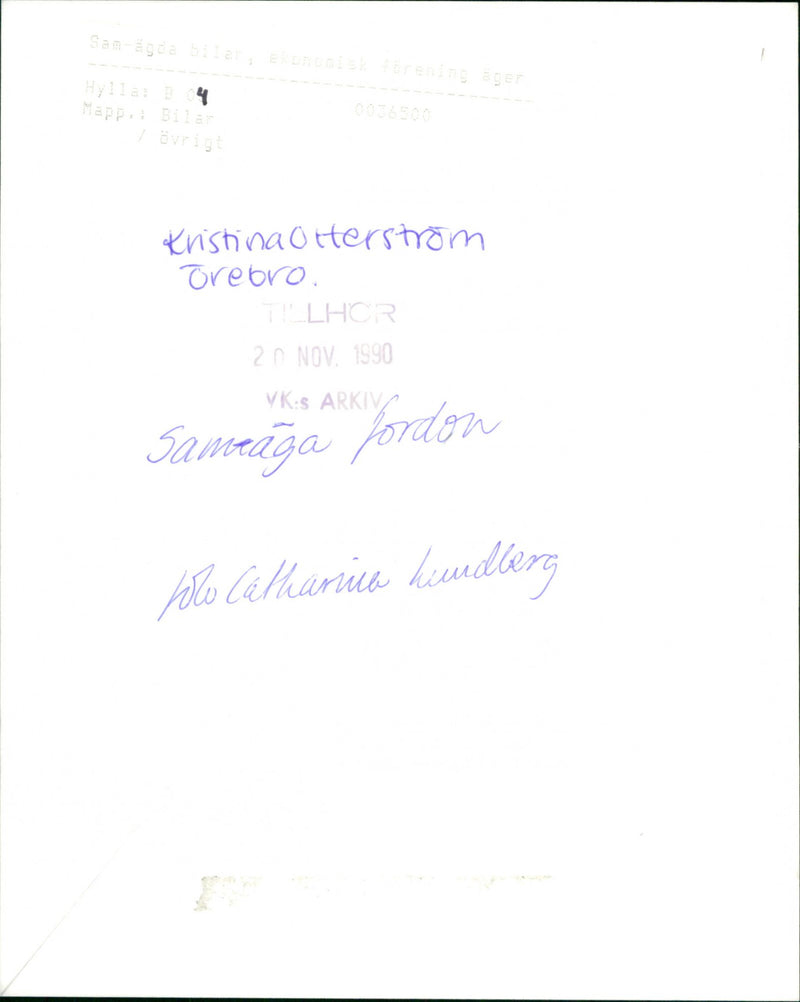 Sam-ägda bilar, ekonomisk förening äger
Hylla: B 04
Mapp.: Bilar
/ övrigt
0036500
Kristina Otterström
Örebro.
TILLHÖR
20 NOV. 1990
VK:s ARKIV
Sam-äga fordon
foto Catharina Lundberg